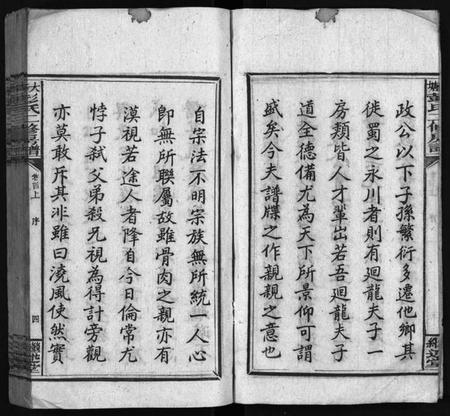 政公以下子孫繁衍多遷他鄉其
徙蜀之永川者則有迴龍夫子一
房類皆人才輩出若吾迴龍夫子
道全德備尤為天下所景仰可謂
盛矣今夫譜牒之作親親之意也
自宗法不明宗族無所統一人心
卽無所聯屬故雖骨肉之親亦有
漠視若途人者降自今日倫常尤
悖子弒父弟殺兄視為得計旁觀
亦莫敢斥其非雖曰澆風使然實
彭氏二修房譜
卷首上
序
四